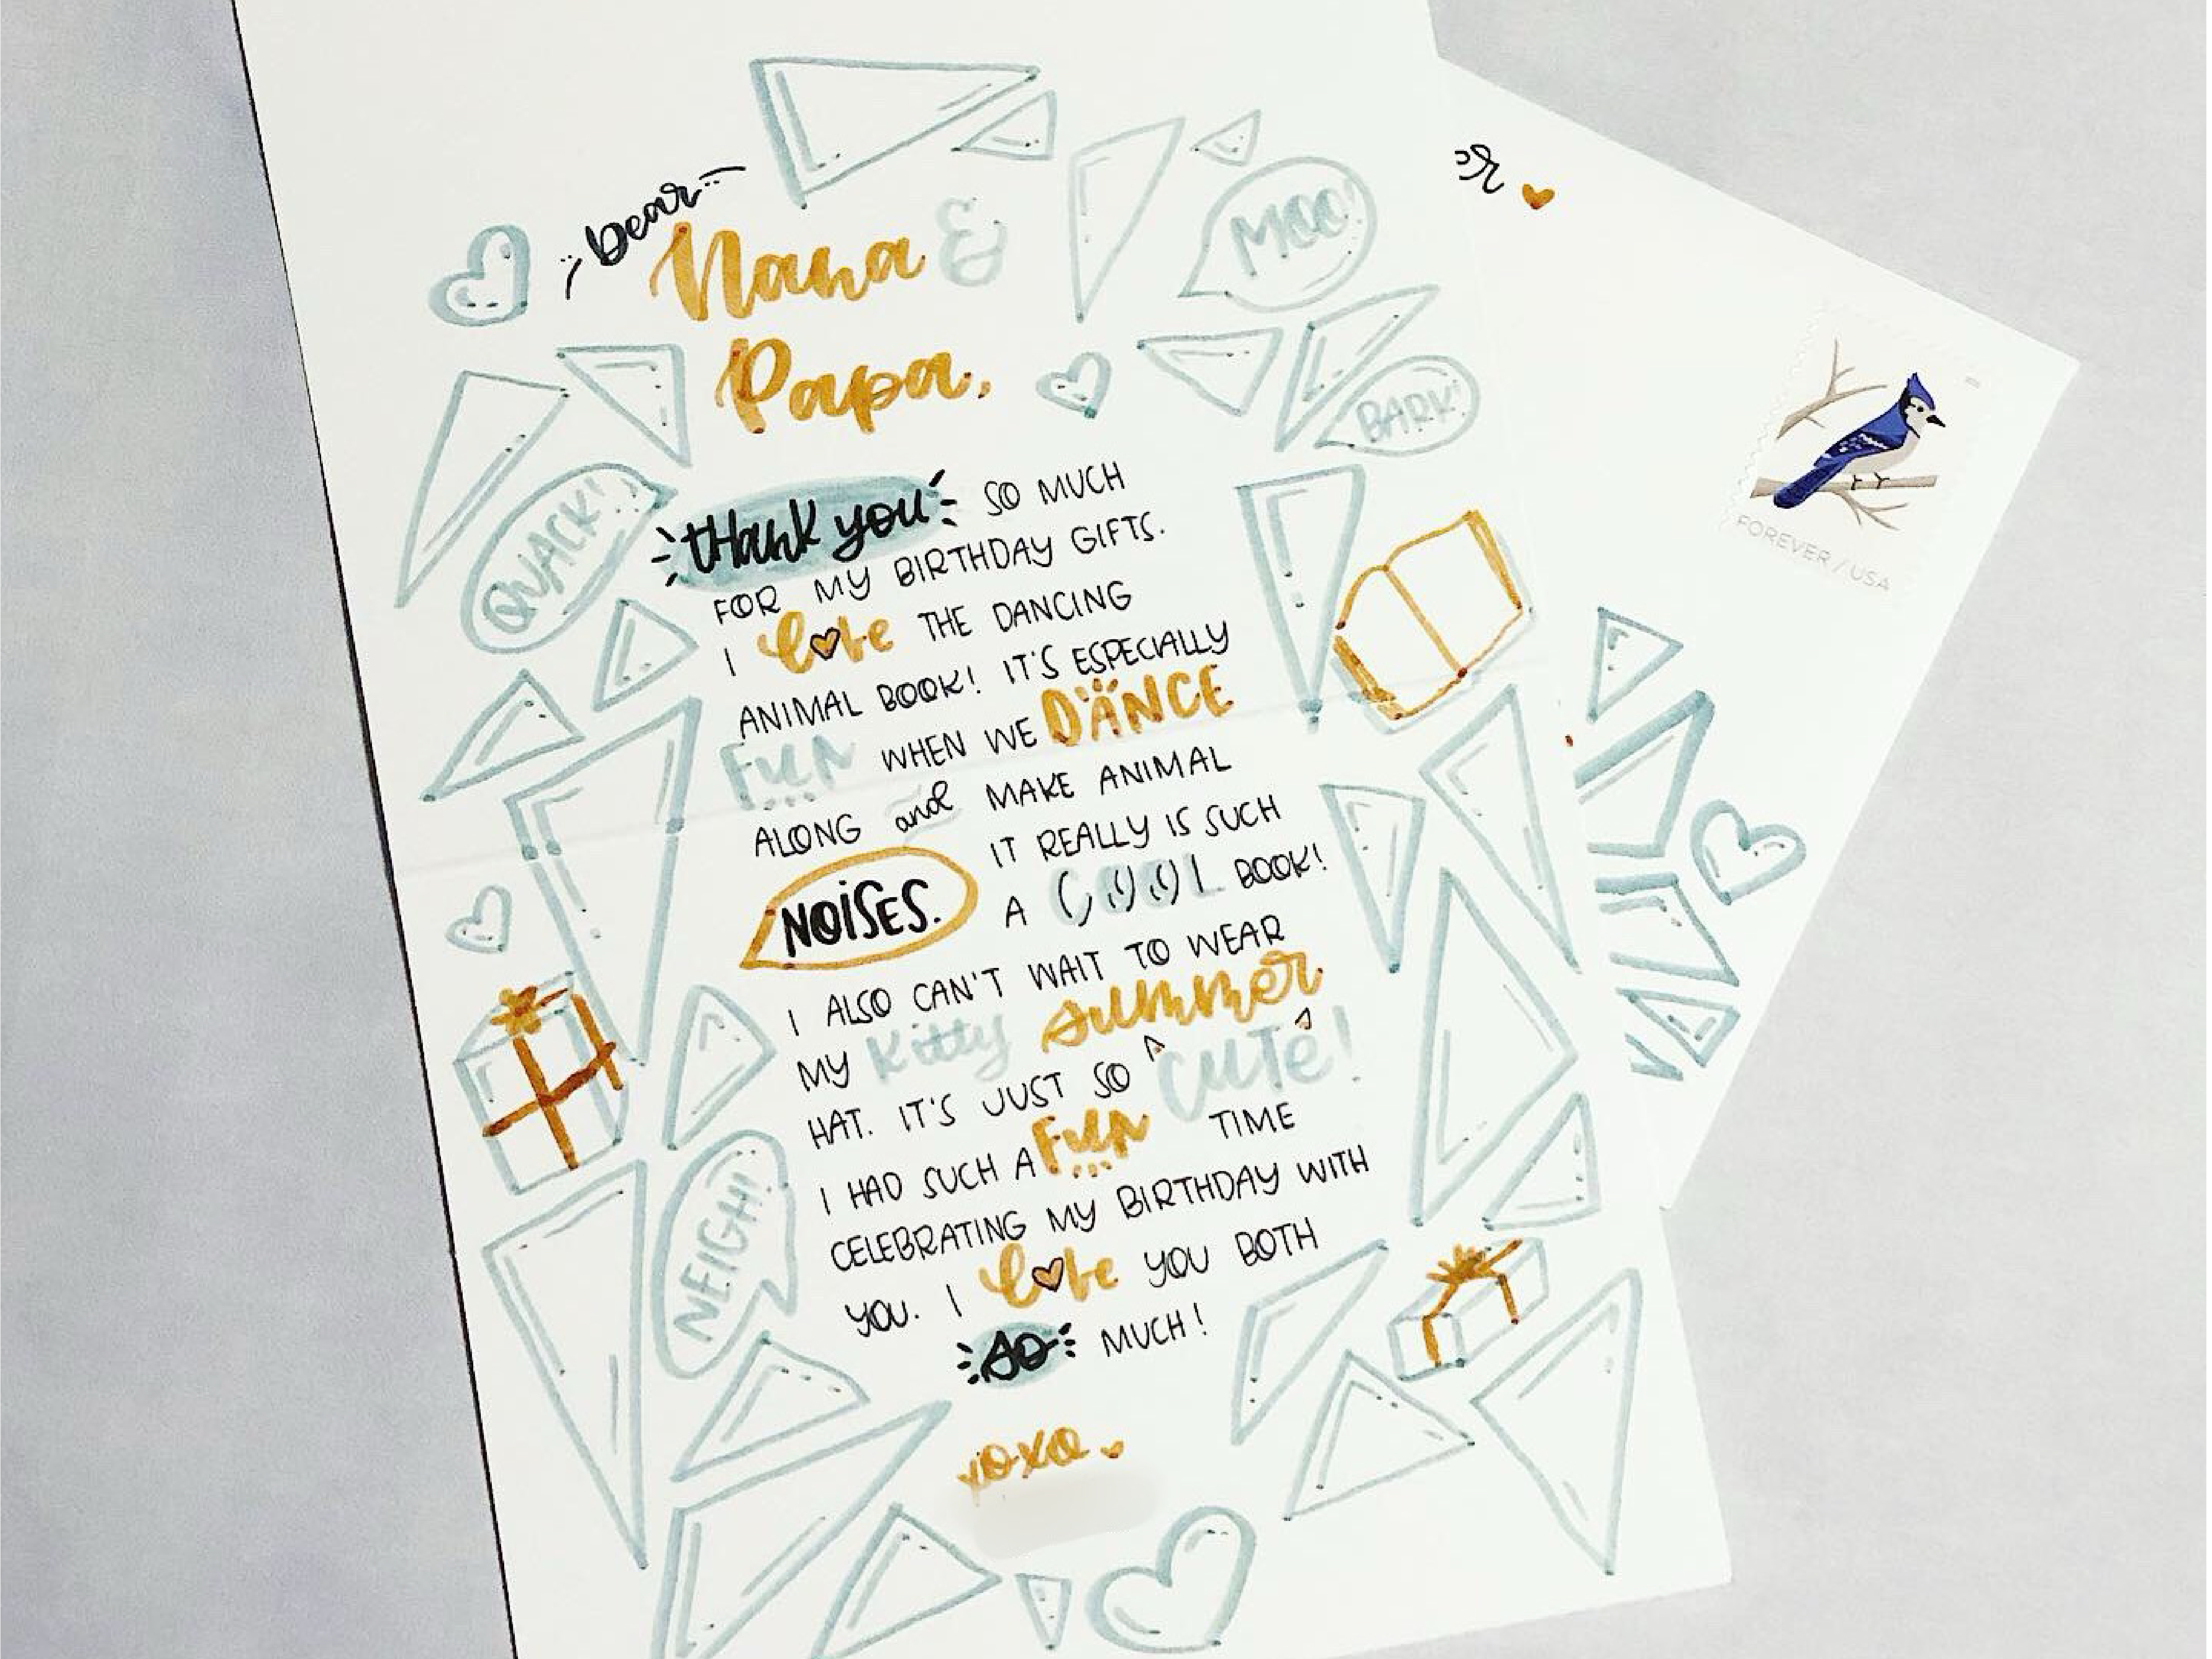 Dear
Nana &
Papa,
MOO!
BARK!
QUACK!
THANK YOU SO MUCH
FOR MY BIRTHDAY GIFTS.
I love THE DANCING
ANIMAL BOOK! IT'S ESPECIALLY
FUN WHEN WE DANCE
ALONG and MAKE ANIMAL
NOISES. IT REALLY IS SUCH
A COOL BOOK!
I ALSO CAN'T WAIT TO WEAR
MY kitty summer
HAT. IT'S JUST SO CUTE!
I HAD SUCH A FUN TIME
CELEBRATING MY BIRTHDAY WITH
YOU. I love YOU BOTH
SO MUCH!
NEIGH!
xoxo
FOREVER / USA